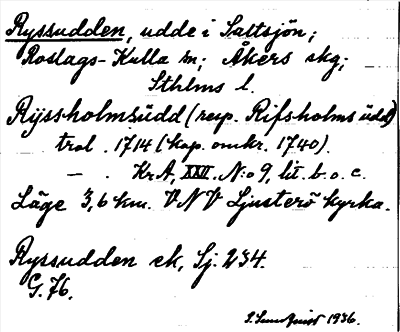 Ryssudden, udde i Saltsjön;
Roslags-Kulla sn; Åkers skg;
Sthlms l.
Rÿssholmsüdd (resp. Rifsholms üdd)
trol. 1714 (kop. omkr. 1740).
— . KrA, XXVI. N:o 9, lit. b. o. c.
Läge 3,6 km. VNV Ljusterö kyrka.
Ryssudden ek, Sj. 234.
G. 76.
S. Lundquist 1936.